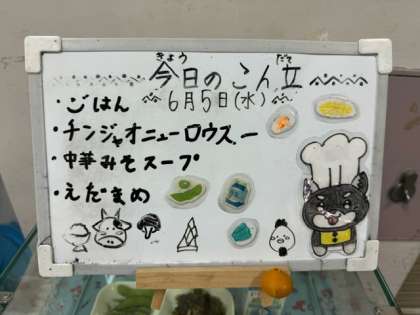 きょう だて
今日のこん立
6月5日(水)
・ごはん
・チンジャオニューロウスー
・中華みそスープ
・えだまめ